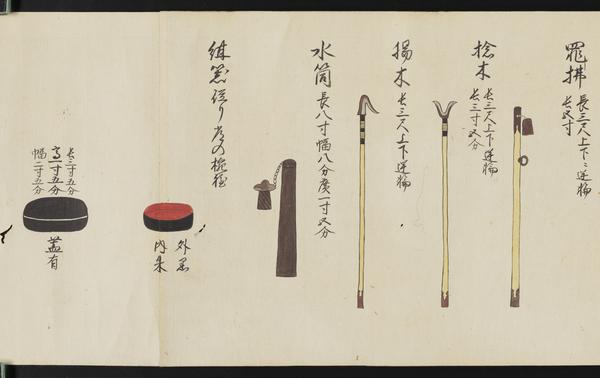 拂 長三尺上下ニ逆輪
長五寸
捻木 長三尺上下逆輪
長三寸五分
揚木 長三尺上下逆輪
水筒 長八寸幅八分廣一寸五分
外黒
内朱
長三寸五分
高一寸五分
幅二寸五分
蓋有